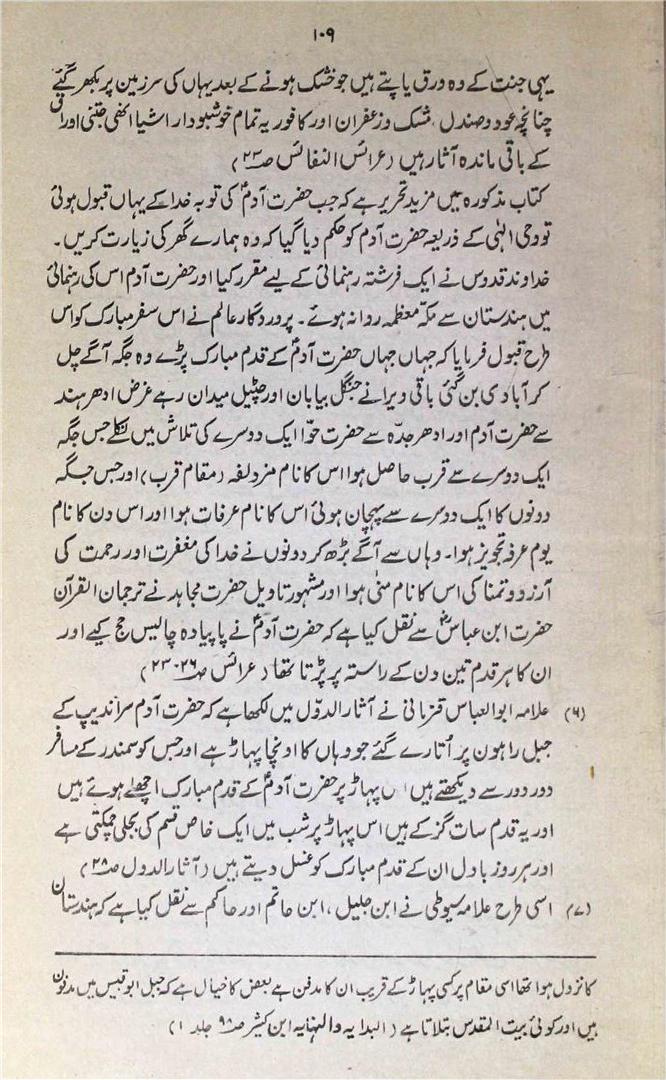 ۱۰۹
یہی جنت کے وہ ورق یا پتے ہیں جو خشک ہونے کے بعد یہاں کی سرزمین پر بکھر گئے
چنانچہ عود و صندل، مشک و زعفران اور کافور یہ تمام خوشبودار اشیا انھی جنتی اوراق
کے باقی ماندہ آثار ہیں (عرائس النفائس صـ۲۳)
کتاب مذکورہ میں مزید تحریر ہے کہ جب حضرت آدمؑ کی توبہ خدا کے یہاں قبول ہوئی
تو وحی الٰہی کے ذریعہ حضرت آدم کو حکم دیا گیا کہ وہ ہمارے گھر کی زیارت کریں۔
خداوند قدوس نے ایک فرشتہ رہنمائی کے لیے مقرر کیا اور حضرت آدم اس کی رہنمائی
میں ہندستان سے مکّہ معظمہ روانہ ہوئے۔ پروردگار عالم نے اس سفر مبارک کو اس
طرح قبول فرمایا کہ جہاں جہاں حضرت آدمؑ کے قدم مبارک پڑے وہ جگہ آگے چل
کر آبادی بن گئی باقی ویرانے جنگل بیابان اور چٹیل میدان رہے غرض ادھر ہند
سے حضرت آدم اور ادھر جدّہ سے حضرت حوّا ایک دوسرے کی تلاش میں نکلے جس جگہ
ایک دوسرے سے قرب حاصل ہوا اس کا نام مزدلفہ (مقام قرب) اور جس جگہ
دونوں کا ایک دوسرے سے پہچان ہوئی اس کا نام عرفات ہوا اور اس دن کا نام
یوم عرفہ تجویز ہوا۔ وہاں سے آگے بڑھ کر دونوں نے خدا کی مغفرت اور رحمت کی
آرزو و تمنا کی اس کا نام منٰی ہوا اور مشہور تاویل حضرت مجاہد نے ترجمان القرآن
حضرت ابن عباسؓ سے نقل کیا ہے کہ حضرت آدمؑ نے پاپیادہ چالیس حج کیے اور
ان کا ہر قدم تین دن کے راستہ پر پڑتا تھا (عرائس صـ۲۶-۲۳)
(۶) علامہ ابوالعباس قزمانی نے آثار الدوّل میں لکھا ہے کہ حضرت آدم سراندیپ کے
جبل راہون پر اُتارے گئے جو وہاں کا اونچا پہاڑ ہے اور جس کو سمندر کے مسافر
دور دور سے دیکھتے ہیں اس پہاڑ پر حضرت آدمؑ کے قدم مبارک اچھلے ہوئے ہیں
اور یہ قدم سات گز کے ہیں اس پہاڑ پر شب میں ایک خاص قسم کی بجلی چمکتی ہے
اور ہر روز بادل ان کے قدم مبارک کو غسل دیتے ہیں (آثار الدول صـ۲۸)
(۷) اسی طرح علامہ سیوطی نے ابن جلیل، ابن حاتم اور حاکم سے نقل کیا ہے کہ ہندستان
کا نزول ہوا تھا اسی مقام پر کسی پہاڑ کے قریب ان کا مدفن ہے بعض کا خیال ہے کہ جبل ابو قبیس میں مدفون
ہیں اور کوئی بیت المقدس بتلاتا ہے (البدایہ والنہایہ ابن کثیر صـ۹۸ جلد ۱)